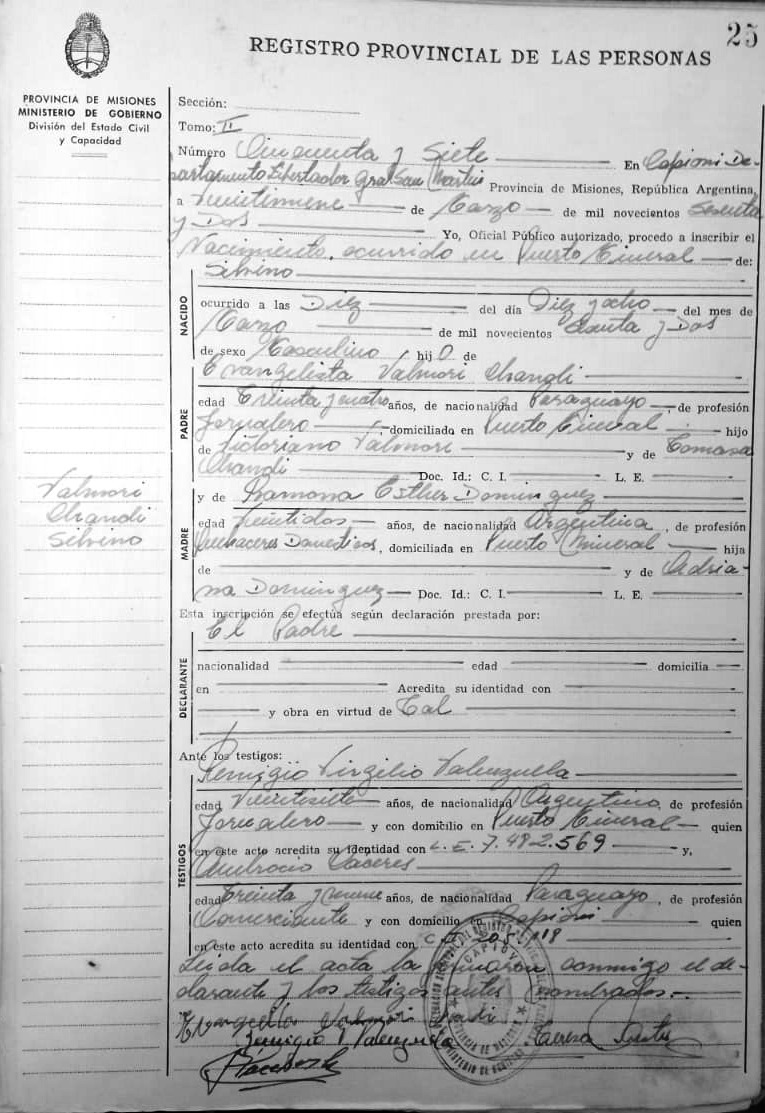 25
REGISTRO PROVINCIAL DE LAS PERSONAS
PROVINCIA DE MISIONES
MINISTERIO DE GOBIERNO
División del Estado Civil
y Capacidad
Sección:
Tomo: II
Número Cincuenta y Siete En Capioví De-
partamento Libertador Gral San Martín Provincia de Misiones, República Argentina,
a Veintinueve de Marzo de mil novecientos Sesenta
y Dos Yo, Oficial Público autorizado, procedo a inscribir el
Nacimiento ocurrido en Puerto Mineral de:
Silvino
NACIDO
ocurrido a las Diez del día Diez y ocho del mes de
Marzo de mil novecientos Sesenta y Dos
de sexo Masculino, hijo de
Evangelista Valmori Chandi
PADRE
edad Treinta y cuatro años, de nacionalidad Paraguayo, de profesión
Jornalero, domiciliado en Puerto Mineral hijo
de Victoriano Valmori y de Tomasa
Chandi Doc. Id.: C. I. L. E.
Valmori
Chandi
Silvino
y de Ramona Esther Dominguez
MADRE
edad Veintidos años, de nacionalidad Argentina, de profesión
Quehaceres Domesticos, domiciliada en Puerto Mineral hija
de y de Adria-
na Dominguez Doc. Id.: C. I. L. E.
Esta inscripción se efectúa según declaración prestada por:
El Padre
DECLARANTE
nacionalidad edad domicilia
en Acredita su identidad con
y obra en virtud de Tal
Ante los testigos:
Remigio Virgilio Valenzuella
TESTIGOS
edad Veintisiete años, de nacionalidad Argentino, de profesión
Jornalero y con domicilio en Puerto Mineral quien
en este acto acredita su identidad con L.E. 7.482.569 y,
Ambrocio Caceres
edad Treinta y nueve años, de nacionalidad Paraguayo, de profesión
Comerciante y con domicilio en Capioví quien
en este acto acredita su identidad con
Leida el acta la firmaron conmigo el de-
clarante y los testigos antes nombrados.
Valmori
Remigio V Valenzuela